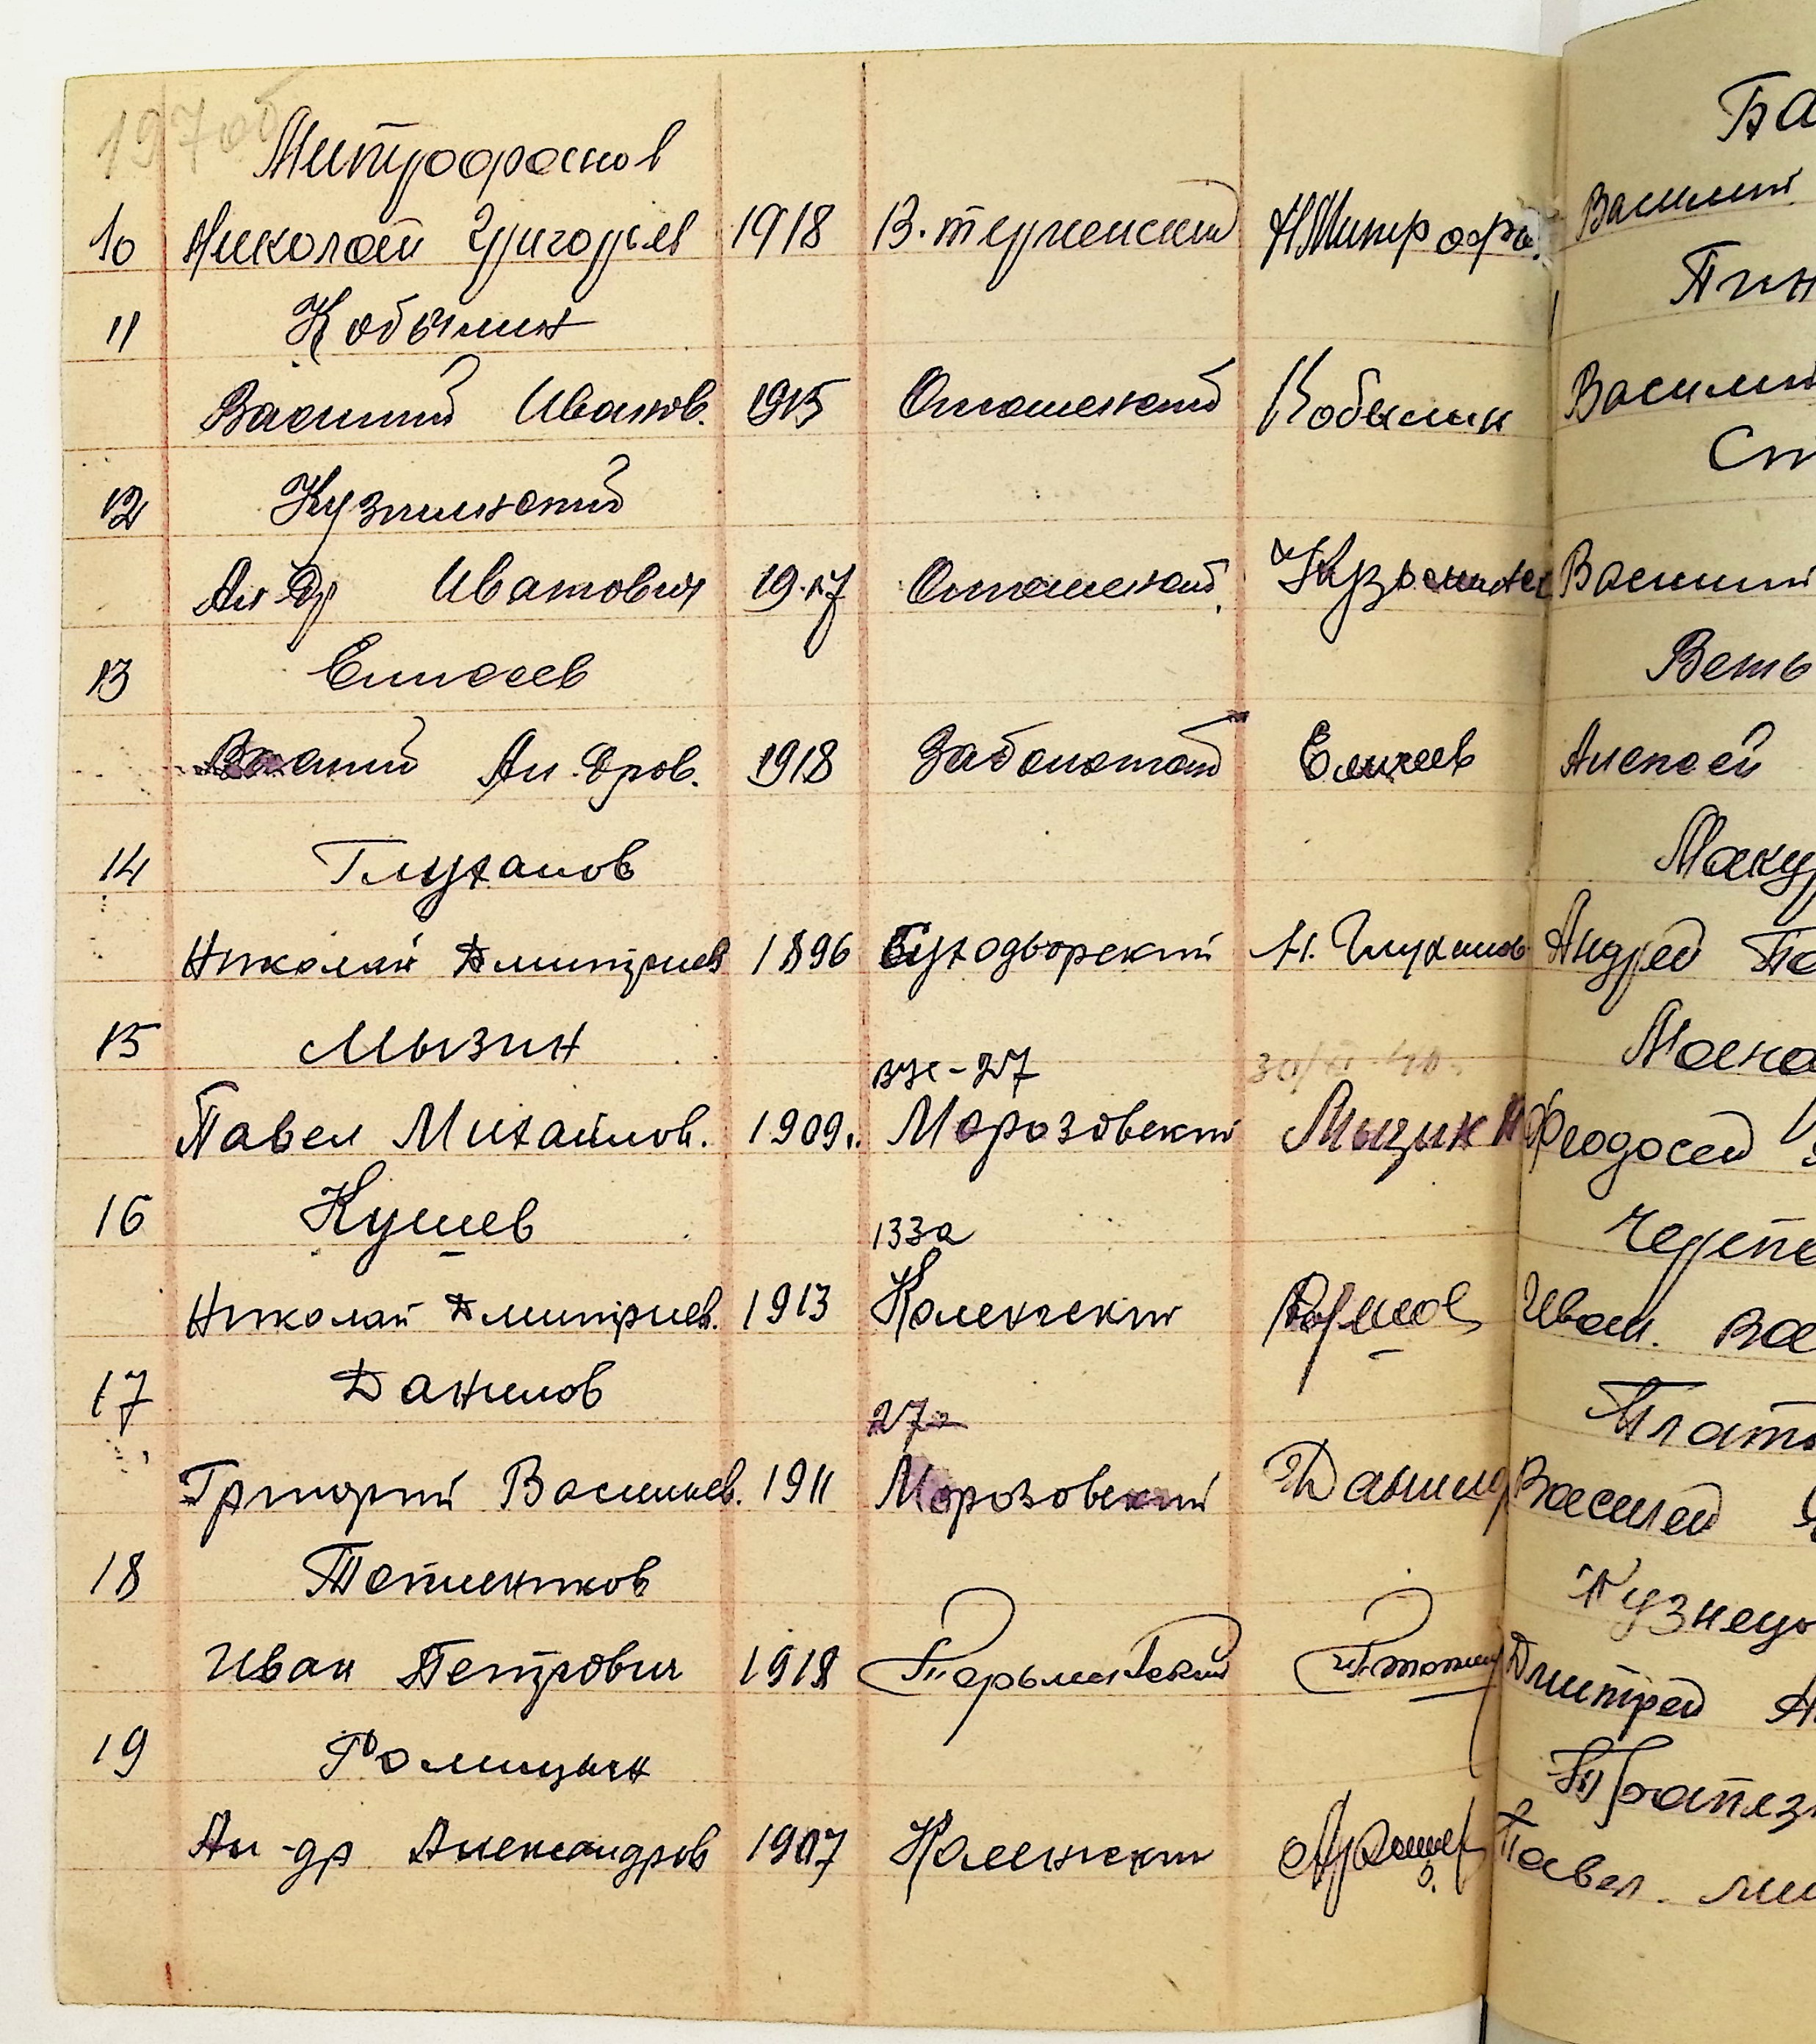 197об
Митрофанов
10 Николай Григорьев 1918 В.-терненский Н Митрофа.
11 Кобылин
Василий Иванов. 1915 Отнашенский Кобылин
12 Кузминский
Ал-др Иванович 1917 Отнашенский Кузьминск
13 Елисеев
Василий Ал-дров. 1918 Заболотной Елисеев
14 Глуханов
Николай Дмитриев 1896 Суходворский Н. Глуханов
15 Мызин
вус-27 30/XI-40
Павел Михайлов. 1909. Морозовский Мызин
16 Кушев
133а
Николай Дмитриев. 1913 Каленский
17 Данилов
27
Григорий Васильев. 1911 Морозовский Данилов
18 Топленников
Иван Петрович 1918
19 Ромицын
Ал-др Александров 1907 Каленский
Ба
Василий
Пин
Василий
Ст
Василий
Веть
Алексей
Маку
Андрей Па
Мака
Феодосей
Череп
Иван. Ва
Плат
Василей
Кузнецо
Дмитрей
Павел. Ми